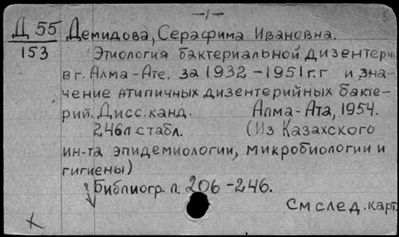 -1-
Д 55 Демидова, Серафима Ивановна.
153 Этиология бактериальной дизентерии
в г. Алма-Ате. за 1932-1951 г.г и зна-
чение атипичных дизентерийных бакте-
рий. Дисс. канд. Алма-Ата, 1954.
246л с табл. (Из Казахского
ин-та эпидемиологии, микробиологии и
гигиены)
Библиогр. л. 206-246.
См след. карт